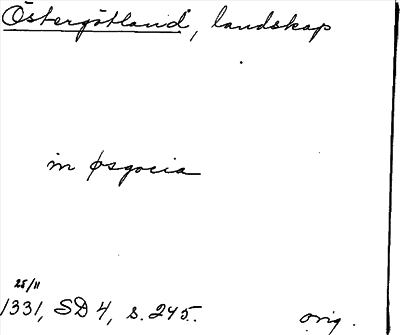 Östergötland, landskap
in øsgocia
25/11
1331, SD 4, s. 245.
orig.